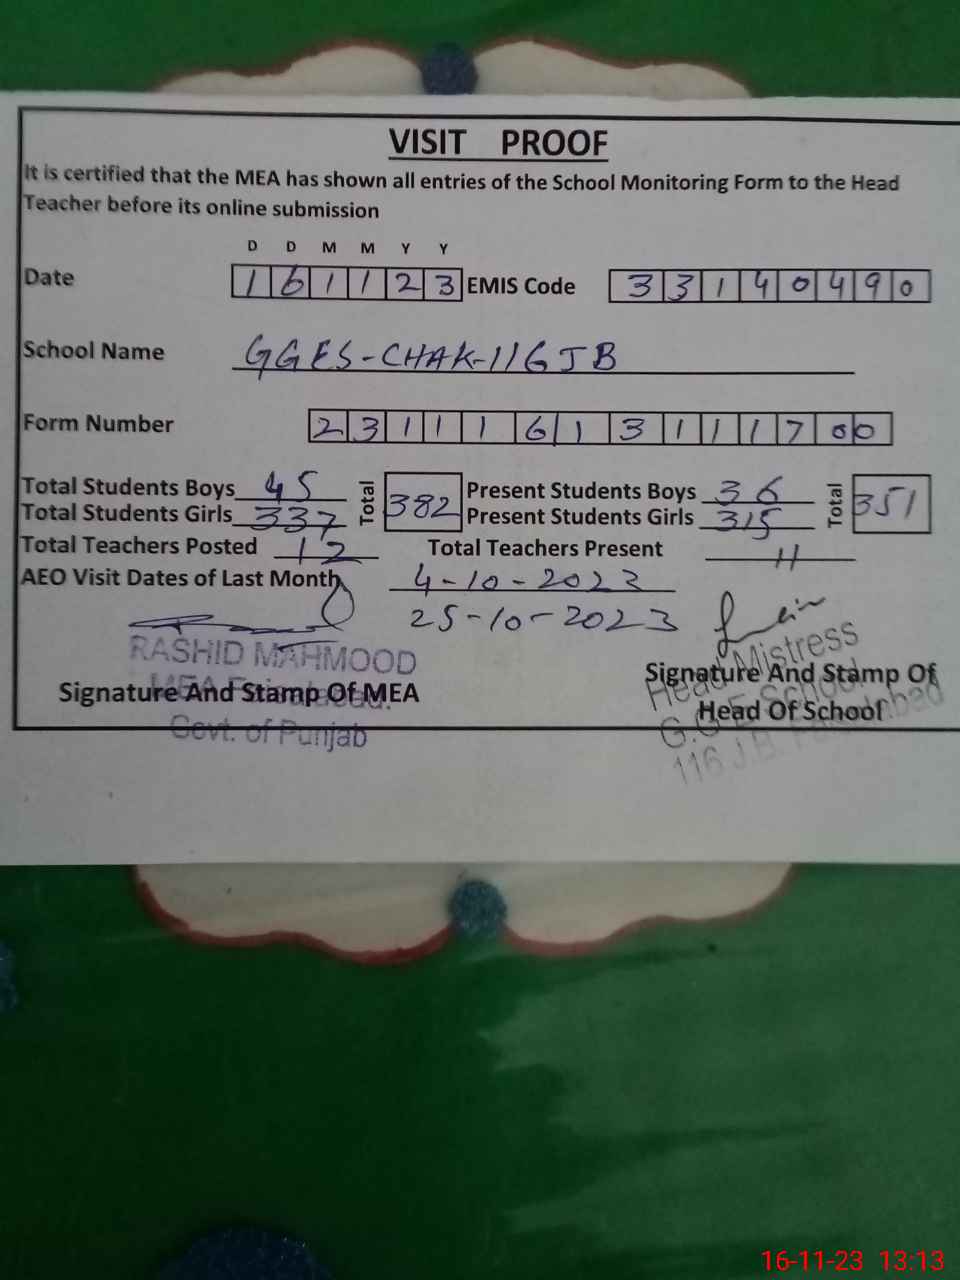 VISIT PROOF
It is certified that the MEA has shown all entries of the School Monitoring Form to the Head
Teacher before its online submission
D D M M Y Y
Date 1 6 1 1 2 3 EMIS Code 3 3 1 4 0 4 9 0
School Name GGES-CHAK-116JB
Form Number 2 3 1 1 1 6 1 3 1 1 1 7 0 0
Total Students Boys 45 Total 382 Present Students Boys 36 Total 351
Total Students Girls 337 Present Students Girls 315
Total Teachers Posted 12 Total Teachers Present 11
AEO Visit Dates of Last Month 4-10-2023
25-10-2023
RASHID MAHMOOD
MEA
Govt. of Punjab
Signature And Stamp Of MEA
Head Mistress
G.G.E School
116 J.B.
Signature And Stamp Of
Head Of School
16-11-23 13:13